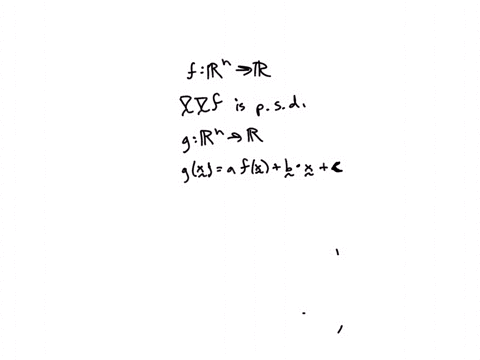 f: ℝⁿ → ℝ
∇̰∇̰f is p.s.d.
g: ℝⁿ → ℝ
g(x̰) = a f(x̰) + b̰ · x̰ + c